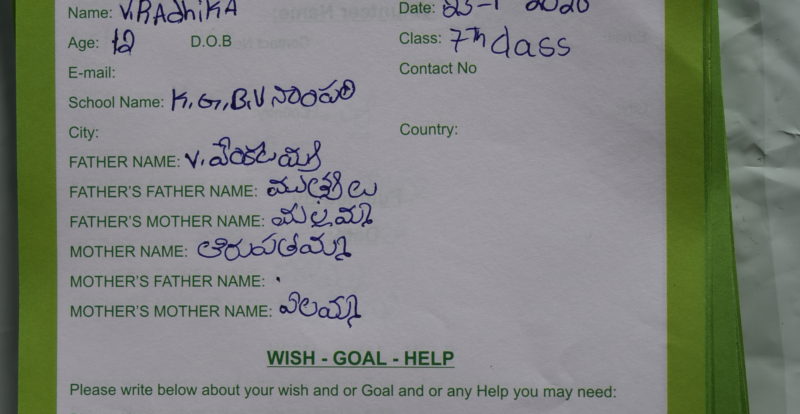 Name: V.RAdhiKA Date: 23-1 2020
Age: 12 D.O.B Class: 7th class
E-mail: Contact No
School Name: K.G.B.V నాంపల్లి
City: Country:
FATHER NAME: V.
FATHER'S FATHER NAME: ముత్యాలు
FATHER'S MOTHER NAME: మల్లమ్మ
MOTHER NAME: తిరుపతమ్మ
MOTHER'S FATHER NAME:
MOTHER'S MOTHER NAME:
WISH - GOAL - HELP
Please write below about your wish and or Goal and or any Help you may need: